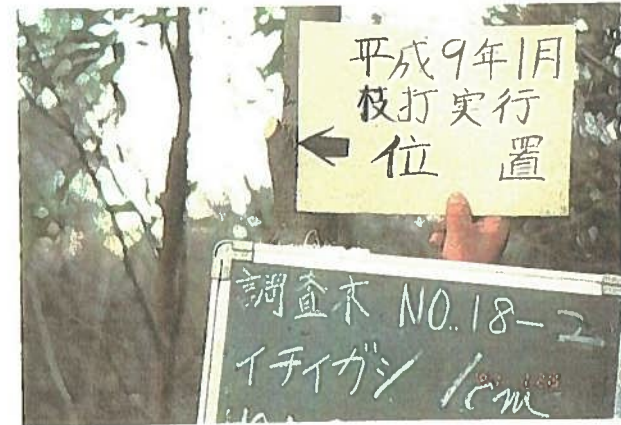 平成9年1月
枝打実行
位置
調査木 NO.18-2
イチイガシ 1cm